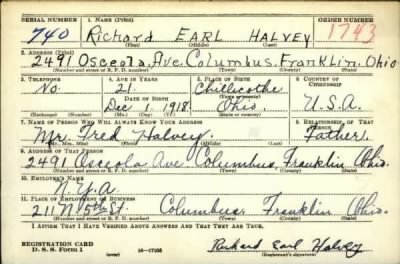 SERIAL NUMBER 1. NAME (Print) ORDER NUMBER
740 Richard EARL HALVEY 1743
(First) (Middle) (Last)
2. ADDRESS (Print)
2491 Osceola Ave. Columbus. Franklin. Ohio
(Number and street or R. F. D. number) (Town) (County) (State)
3. TELEPHONE 4. AGE IN YEARS 5. PLACE OF BIRTH 6. COUNTRY OF CITIZENSHIP
No. 21. Chillicothe
DATE OF BIRTH (Town or county)
Dec 1 1918. Ohio. U.S.A.
(Exchange) (Number) (Mo.) (Day) (Yr.) (State or country)
7. NAME OF PERSON WHO WILL ALWAYS KNOW YOUR ADDRESS 8. RELATIONSHIP OF THAT PERSON
Mr. Fred Halvey. Father.
(Mr., Mrs., Miss) (First) (Middle) (Last)
9. ADDRESS OF THAT PERSON
2491 Osceola Ave Columbus, Franklin Ohio.
(Number and street or R. F. D. number) (Town) (County) (State)
10. EMPLOYER'S NAME
N.Y.A.
11. PLACE OF EMPLOYMENT OR BUSINESS
211 N 5th St. Columbus Franklin Ohio.
(Number and street or R. F. D. number) (Town) (County) (State)
I AFFIRM THAT I HAVE VERIFIED ABOVE ANSWERS AND THAT THEY ARE TRUE.
REGISTRATION CARD
D. S. S. Form 1 16-17105 Richard Earl Halvey
(over) (Registrant's signature)